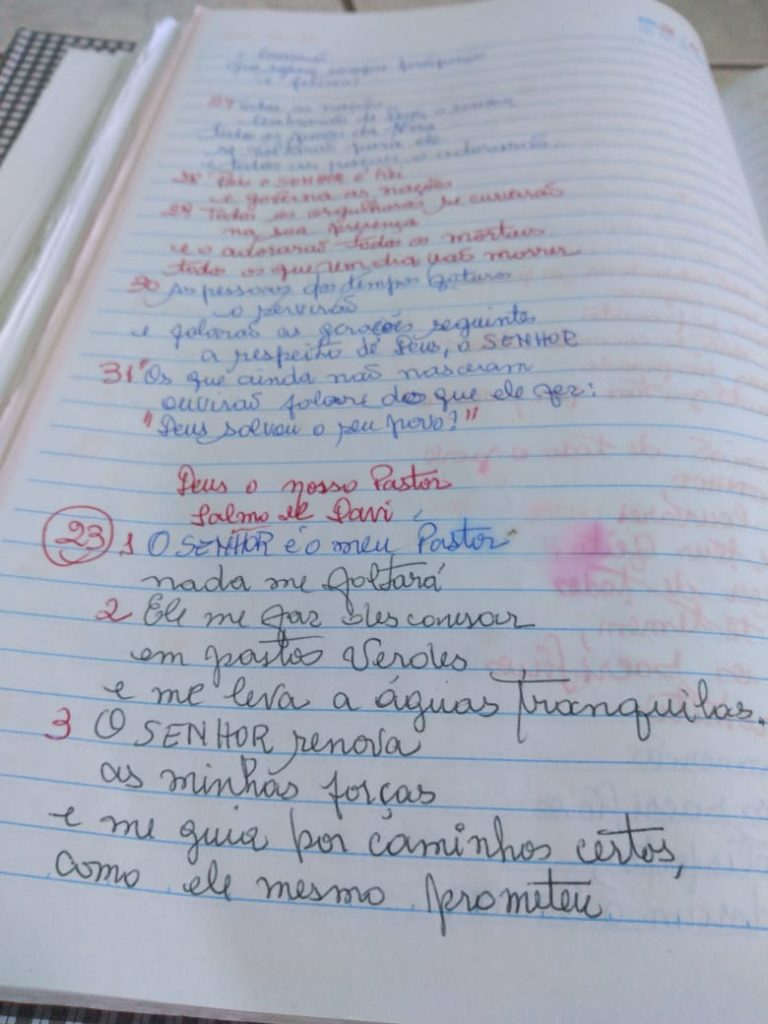 que sejam sempre prósperos
e felizes!
27 todas as nações
lembrarão de Deus o SENHOR
todos os povos da terra
se voltarão para ele
e todas as raças o adorarão.
28 Pois o SENHOR é Rei
e governa as nações
29 Todos os orgulhosos se curvarão
na sua presença
e o adorarão todos os mortais
todos os que um dia vão morrer
30 As pessoas dos tempos futuros
o servirão
e falarão as gerações seguintes
a respeito de Deus, o SENHOR
31 Os que ainda não nasceram
ouvirão falar do que ele fez:
"Deus salvou o seu povo!"
Deus o nosso Pastor
Salmo de Davi
23 1 O SENHOR é o meu Pastor
nada me faltará
2 Ele me faz descansar
em pastos Verdes
e me leva a águas Tranquilas.
3 O SENHOR renova
as minhas forças
e me guia por caminhos certos,
como ele mesmo prometeu